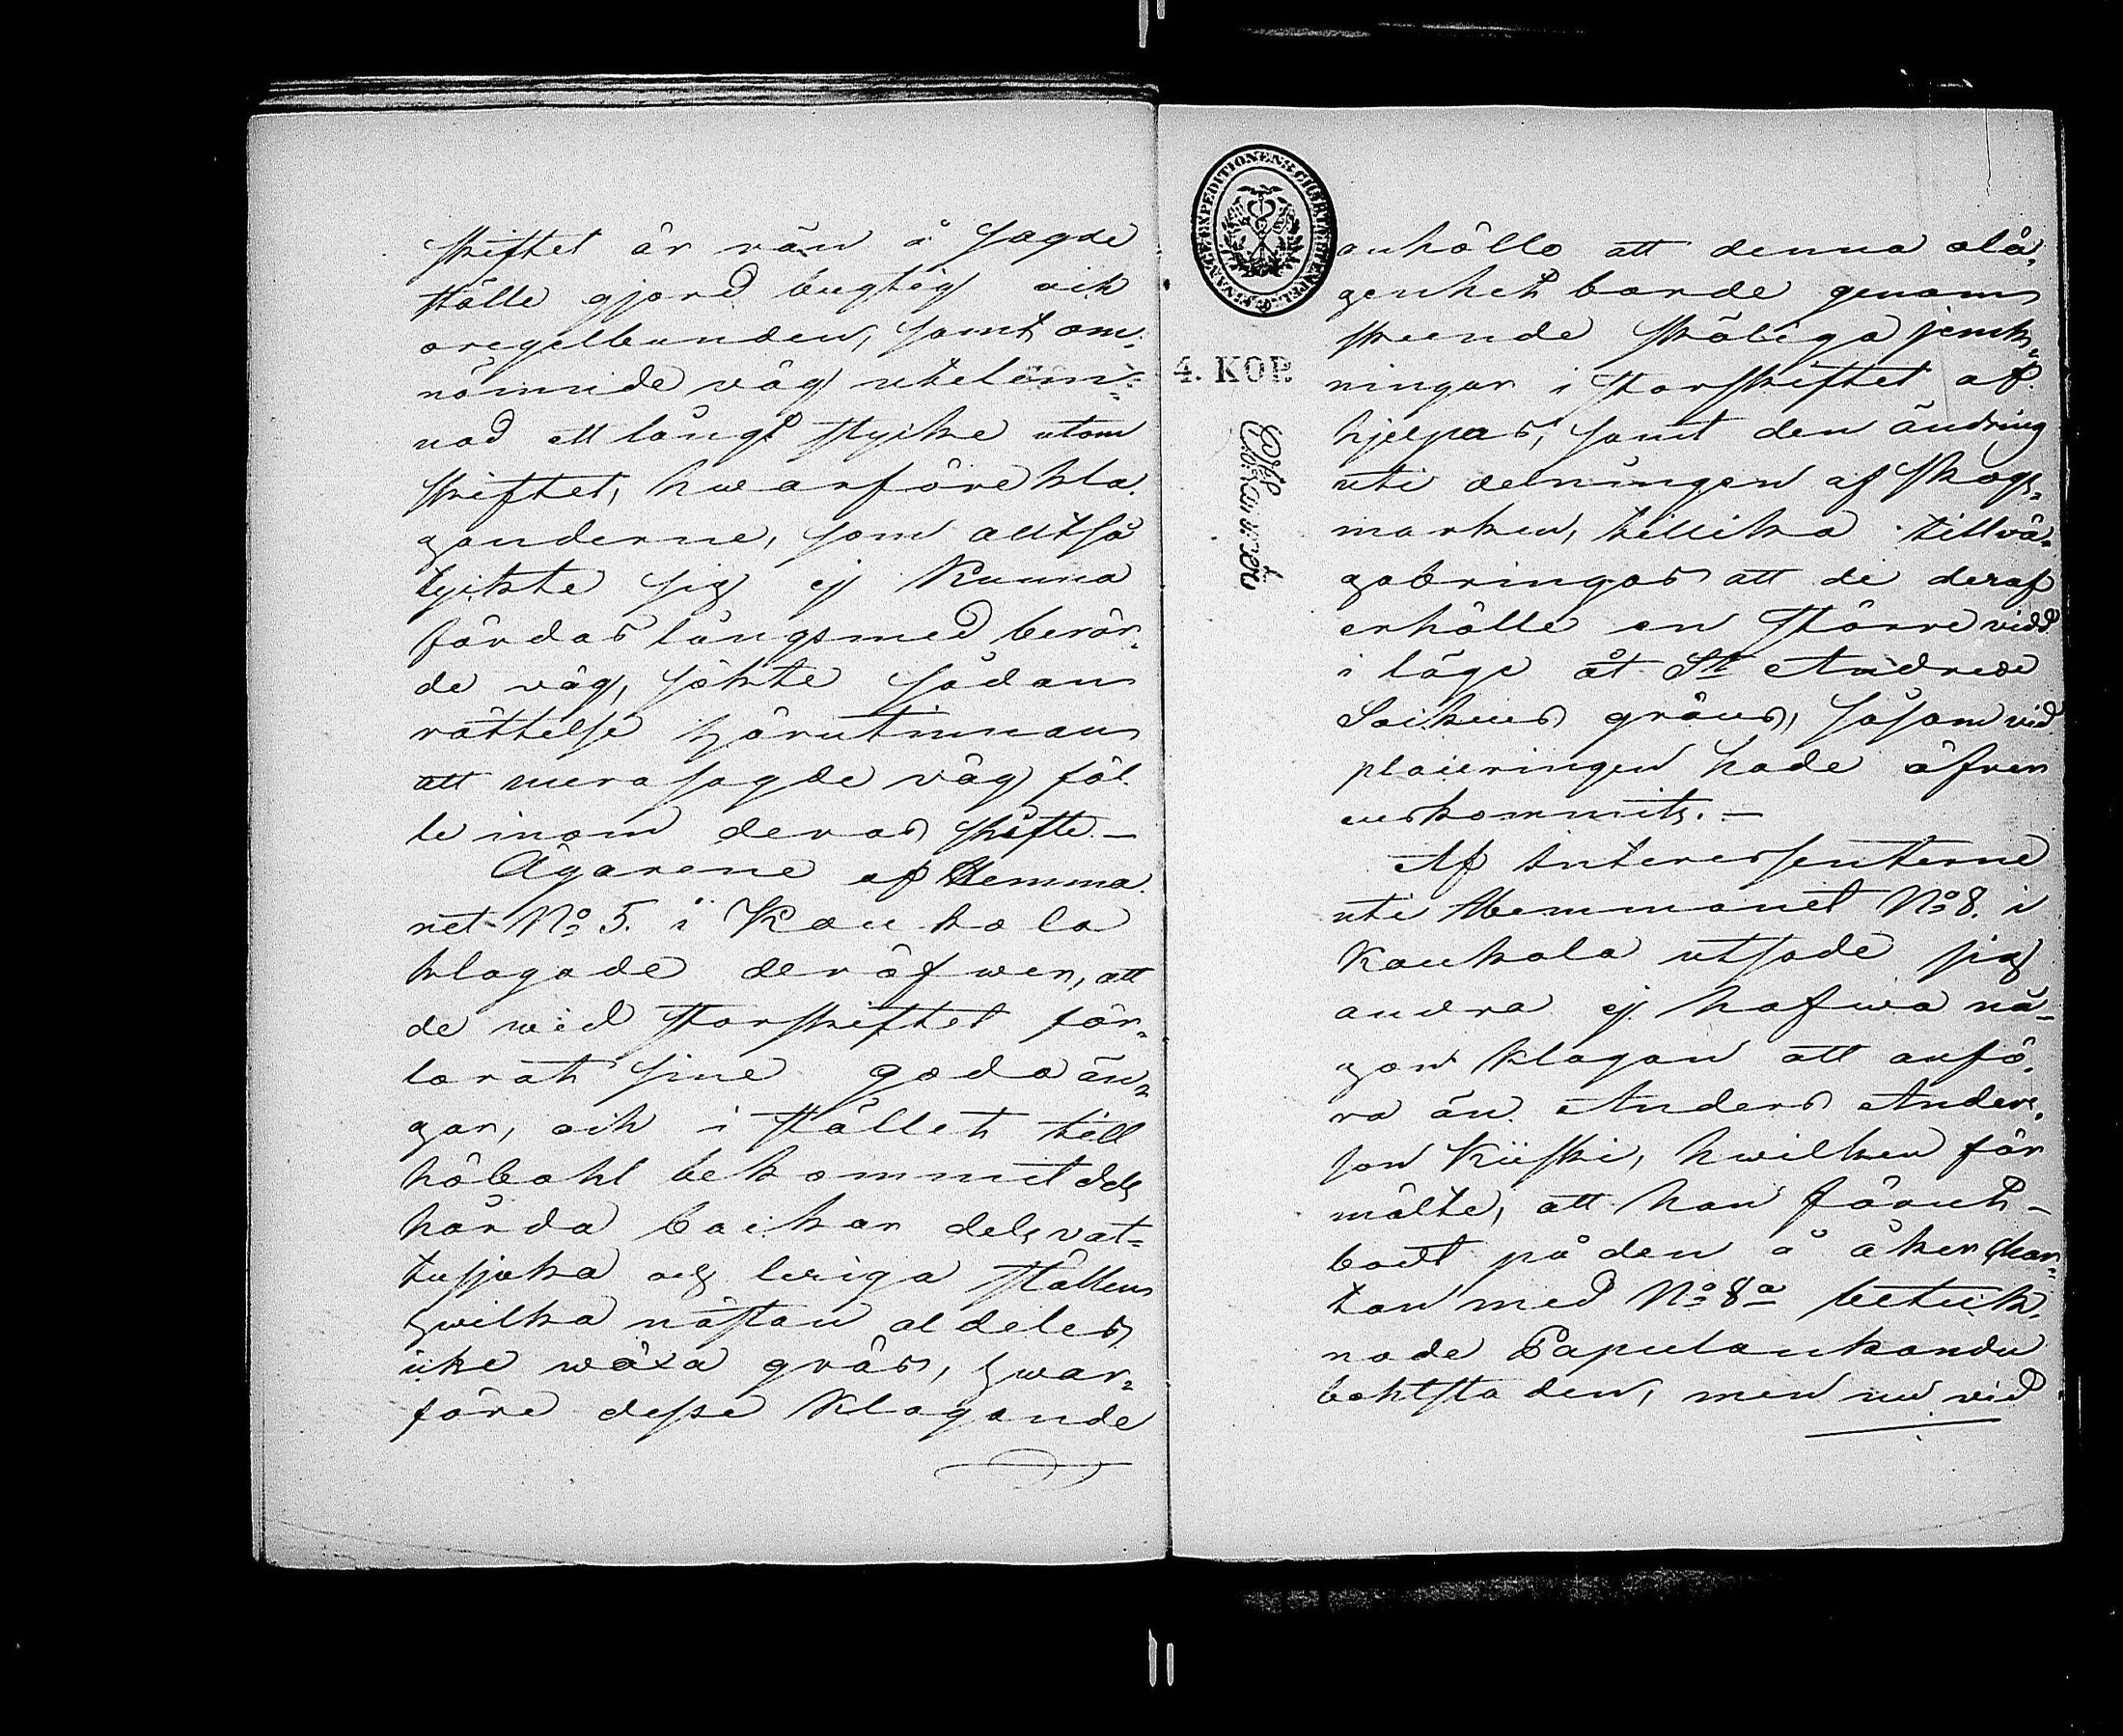 skiftet är rån å sagde
ställe gjord bugtig och
oregelbunden, samt om-
nämnde väg utelem-
nad ett långt stycke utom
skiftet, hwarföre kla-
ganderne, som alltså
tyckte sig ej kunna
färdas längsmed berör-
de väg, sökte sådan
rättelse härutinnan
att merasagde väg föl-
le inom deras skifte.—
Ägarene af Hemma-
net No 5. i Kaukola
klagade deröfwer, att
de wid storskiftet för-
lorat sine goda än-
gar, och i stället till
höbohl bekommit dels
hårda backar dels vat-
tusjuka och leriga ställen
hwilka nästan aldeles
icke wäxa gräs, hwar-
före desse klagande
FINANCE-EXPEDITIONENS CHARTÆ STEMPEL
4. KOP.
anhöllo att denna olä-
genhet borde genom
skeende skäliga jemk-
ningar i storskiftet af-
hjelpas, samt den ändring
uti delningen af skogs-
marken, tillika tillvä-
gabringas att de deraf
erhålle en större vidd
i läge åt St Andreæ
Sockens gräns, såsom vid
placeringen hade öfver-
enskommits.—
Af Interessenterne
uti Hemmanet No 8. i
Kaukola utsade sig
andra ej hafwa nå-
gon klagan att anfö-
ra än Anders Anders-
son Kiiski, hwilken för-
mälte, att han förut
bodt på den å åker char-
tan med No 8a beteck-
nade Papulankondu
bohlstaden, men nu vid